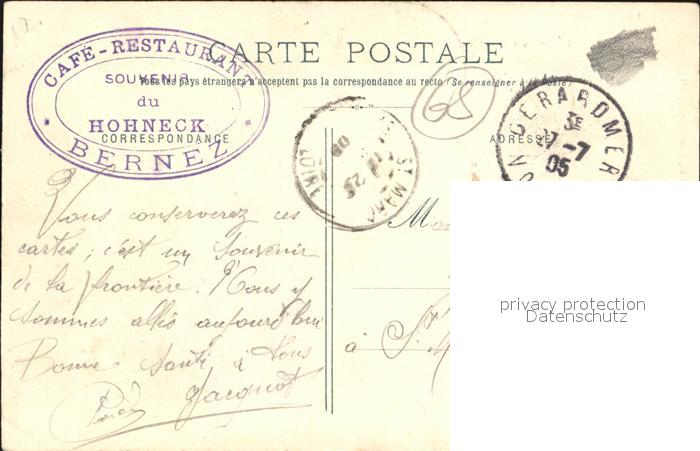 CAFÉ-RESTAURANT
SOUVENIR
du
HOHNECK
BERNEZ
CARTE POSTALE
Tous les pays étrangers n'acceptent pas la correspondance au recto (Se renseigner à la Poste)
CORRESPONDANCE
ADRESSE
68
GERARDMER
3E
7-7
05
ST MARC
25
05
Vous conserverez ces
cartes; c'est un souvenir
de la frontière. Nous y
sommes allés aujourd'hui
Bonne santé à tous
Jacquot
M
à St
privacy protection
Datenschutz